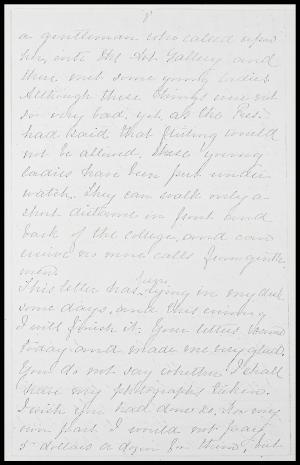 8
a gentleman who called upon
her, into the Art Gallery and
there met some young ladies.
Although these things were not
so very bad, yet, as the Pres.
had said that flirting would
not be allowed, these young
ladies have been put under
watch. They can walk only a
short distance in front and
back of the college, and can
receive no more calls from gentle
men.
This letter has been lying in my desk
some days, and this evening
I will finish it. Your letter came
today and made me very glad.
You do not say whether I shall
have my photographs taken.
I wish you had done so. For my
own part I would not pay
5 dollars a dozen for them, but